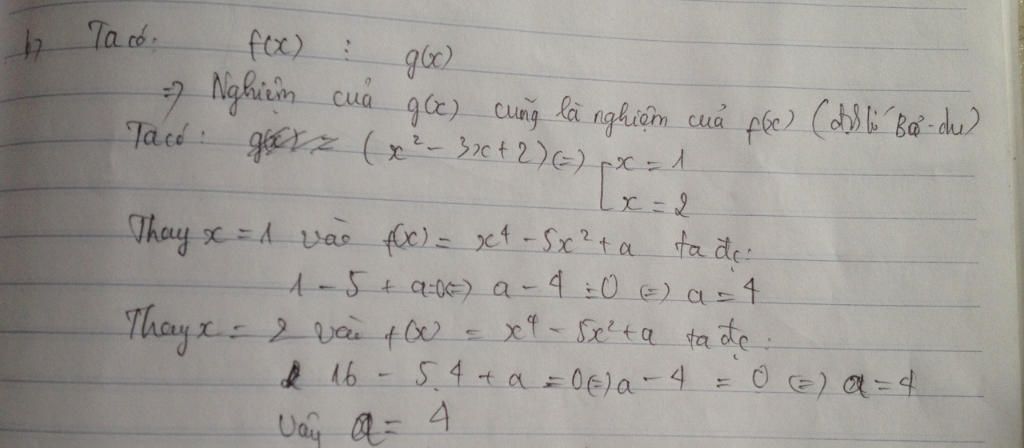 b, Ta có: f(x) ⋮ g(x)
=> Nghiệm cuả g(x) cũng là nghiệm cuả f(x) (định lí Bơ-du)
Ta có: (x² - 3x + 2) (=) [x = 1
x = 2
Thay x = 1 vào f(x) = x⁴ - 5x² + a ta đc:
1 - 5 + a=0(=) a - 4 = 0 (=) a = 4
Thay x = 2 vào f(x) = x⁴ - 5x² + a ta đc:
16 - 5.4 + a = 0(=) a - 4 = 0 (=) a = 4
Vậy a = 4